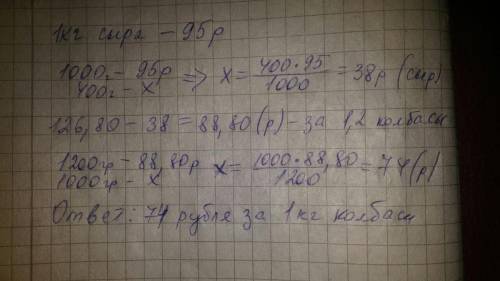 1кг сыра – 95р
1000г – 95р => x = 400*95/1000 = 38р (сыр)
400г – x
126,80 – 38 = 88,80(р) – за 1,2 колбасы
1200гр – 88,80р x = 1000*88,80/1200 = 74(р)
1000гр – x
Ответ: 74 рубля за 1кг колбасы